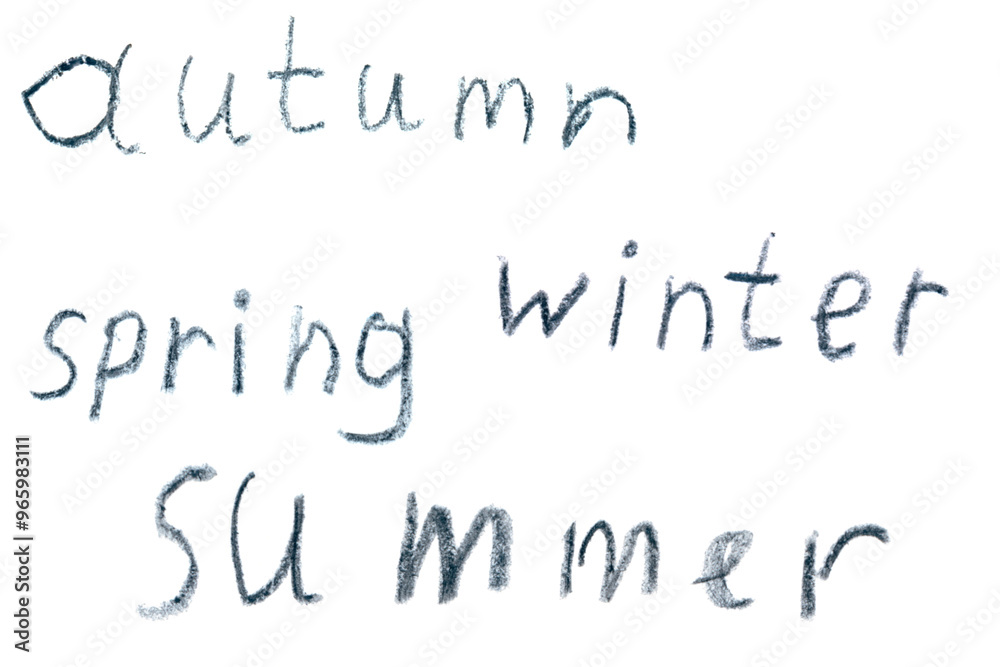 autumn
winter
spring
summer
Adobe Stock | #965983111